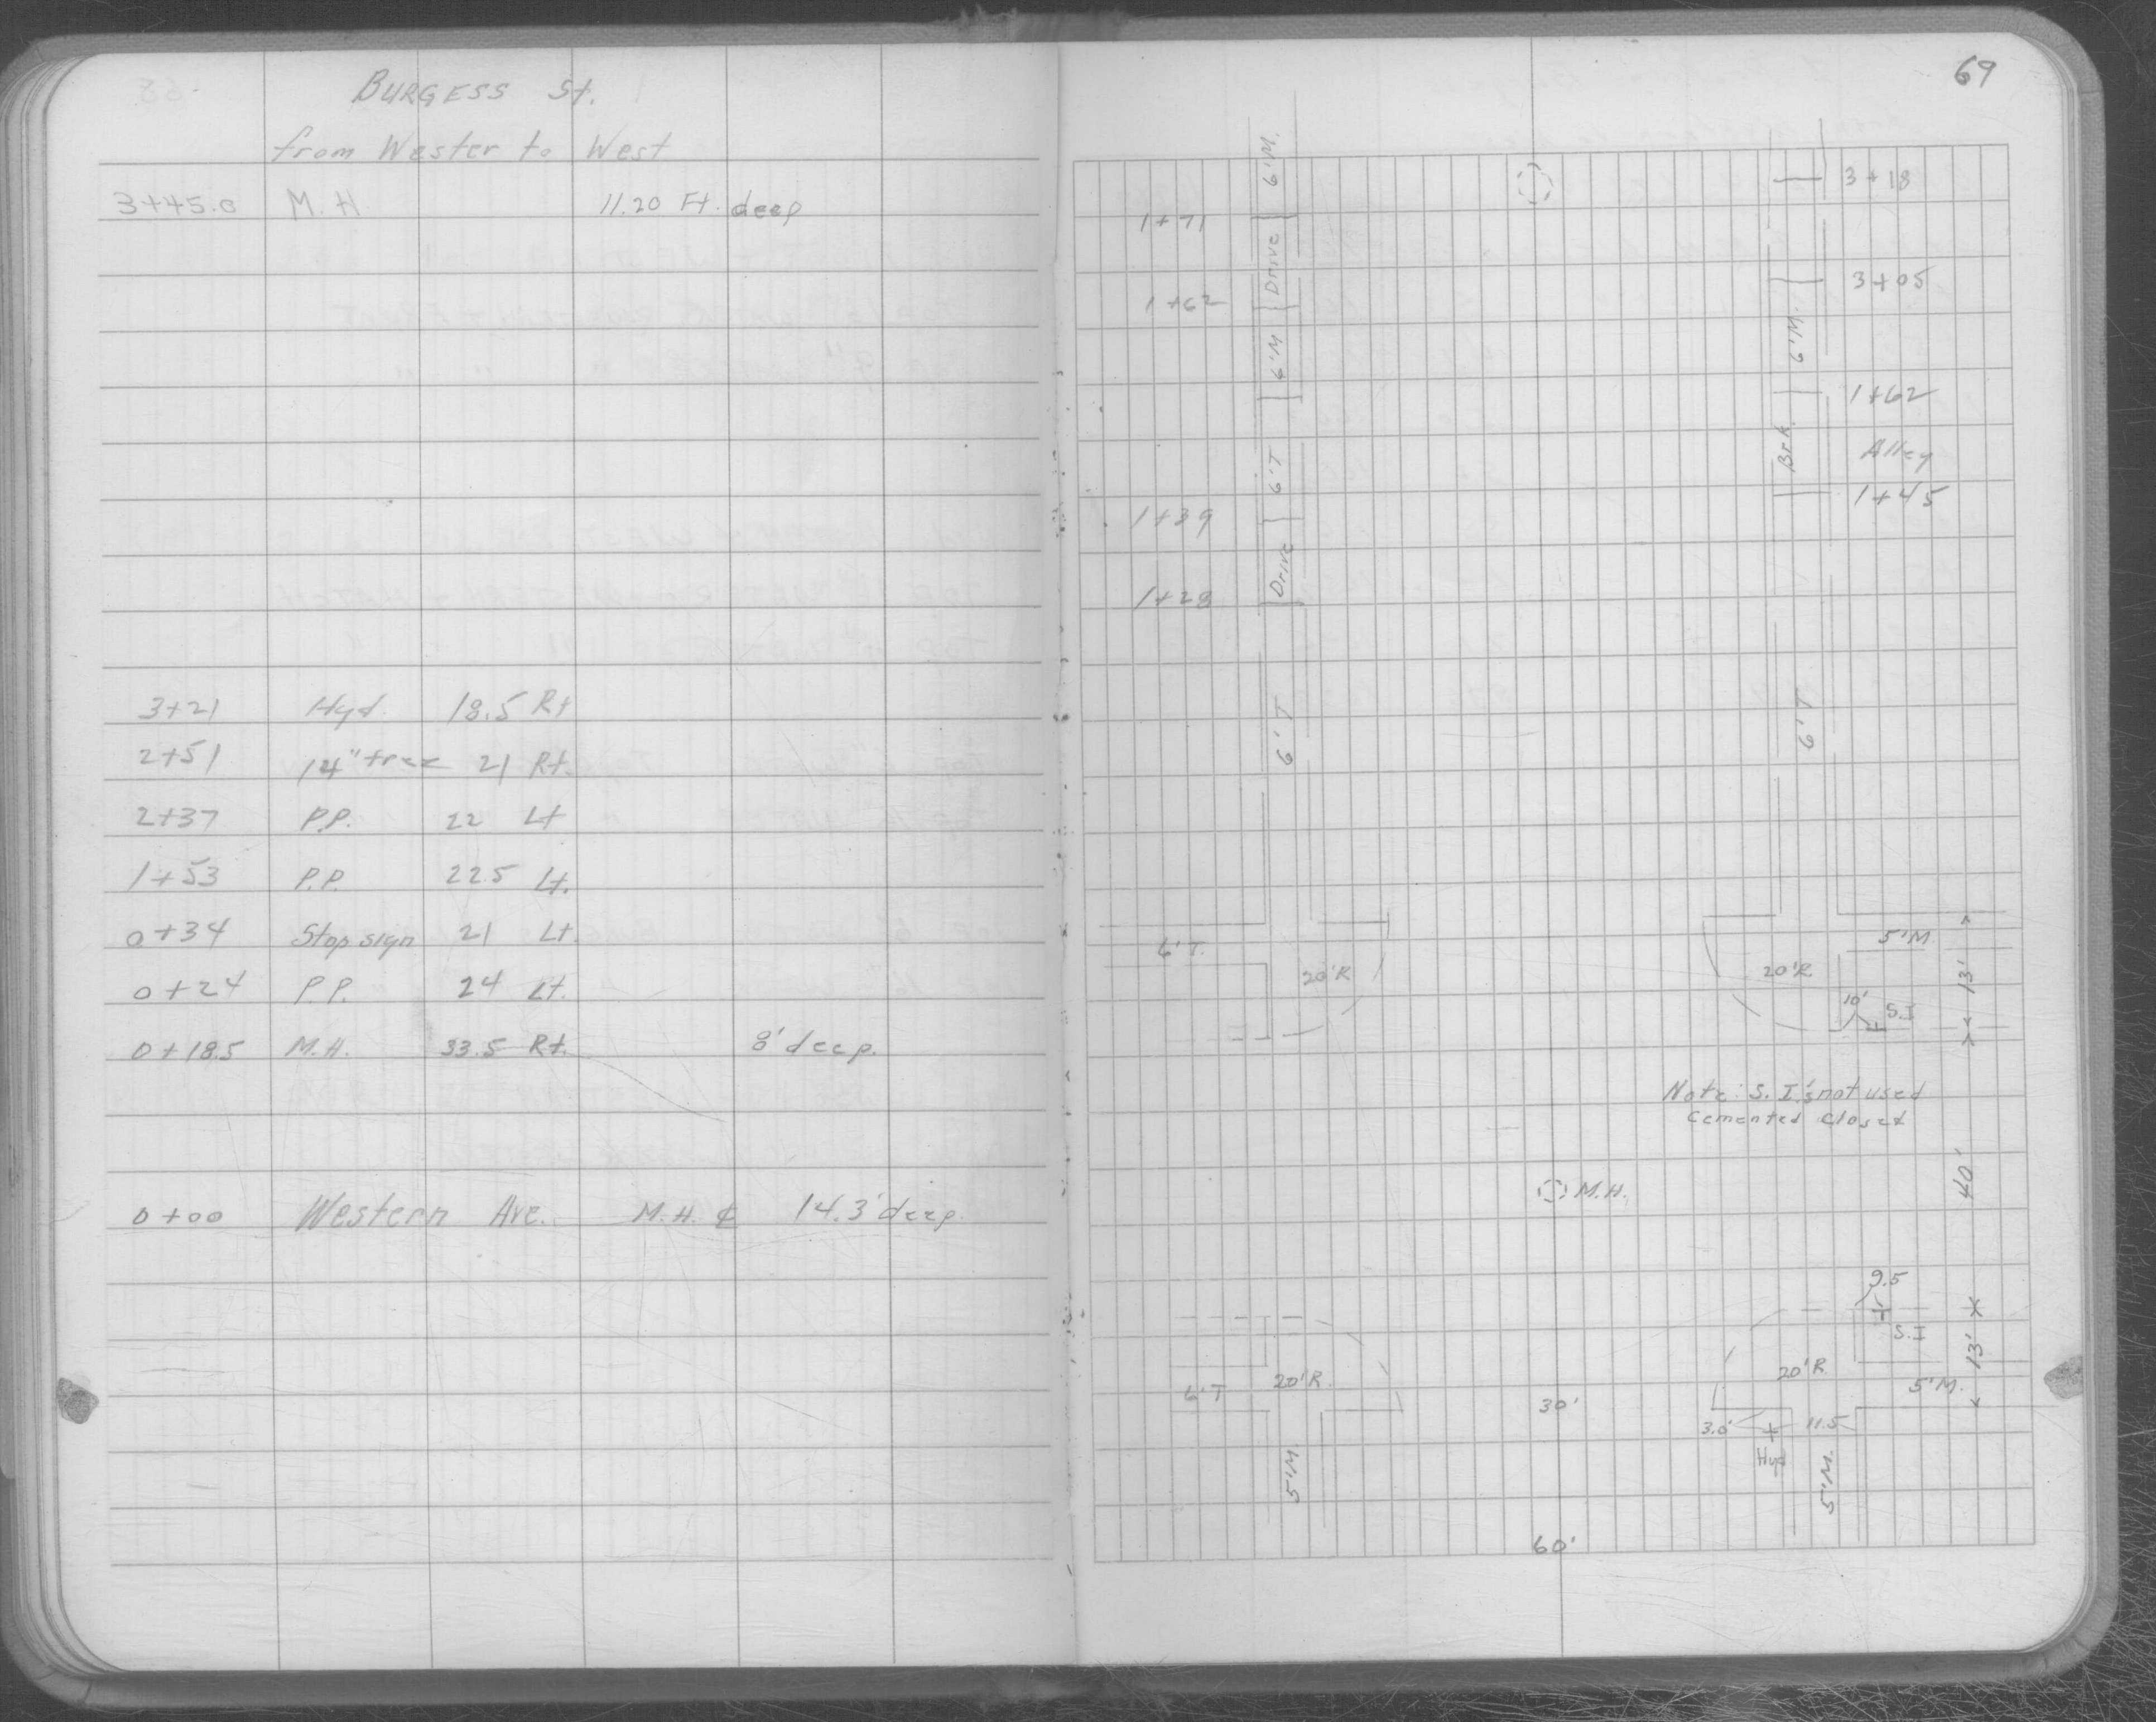 BURGESS St.
from Wester to West
3+45.0 M.H. 11.20 Ft. deep
3+21 Hyd. 18.5 Rt
2+51 14" tree 21 Rt.
2+37 P.P. 22 Lt
1+53 P.P. 22.5 Lt.
0+34 Stop sign 21 Lt.
0+24 P.P. 24 Lt.
0+18.5 M.H. 33.5 Rt. 8' deep.
0+00 Western Ave. M.H. ₵ 14.3' deep.
69
6'M.
3+18
1+71
Drive
3+05
1+62
6'M
6'M.
1+62
6'T
Brk.
Alley
1+45
1+39
Drive
1+28
6'T
6'T
6'T.
20'R
20'R.
5'M.
13'
10'
S.I
Note: S.I.'s not used
Cemented Closed
40'
M.H.
9.5
S.I
13'
6'T
20'R.
20'R.
5'M.
30'
3.0'
11.5
Hyd
5'M
5'M.
60'